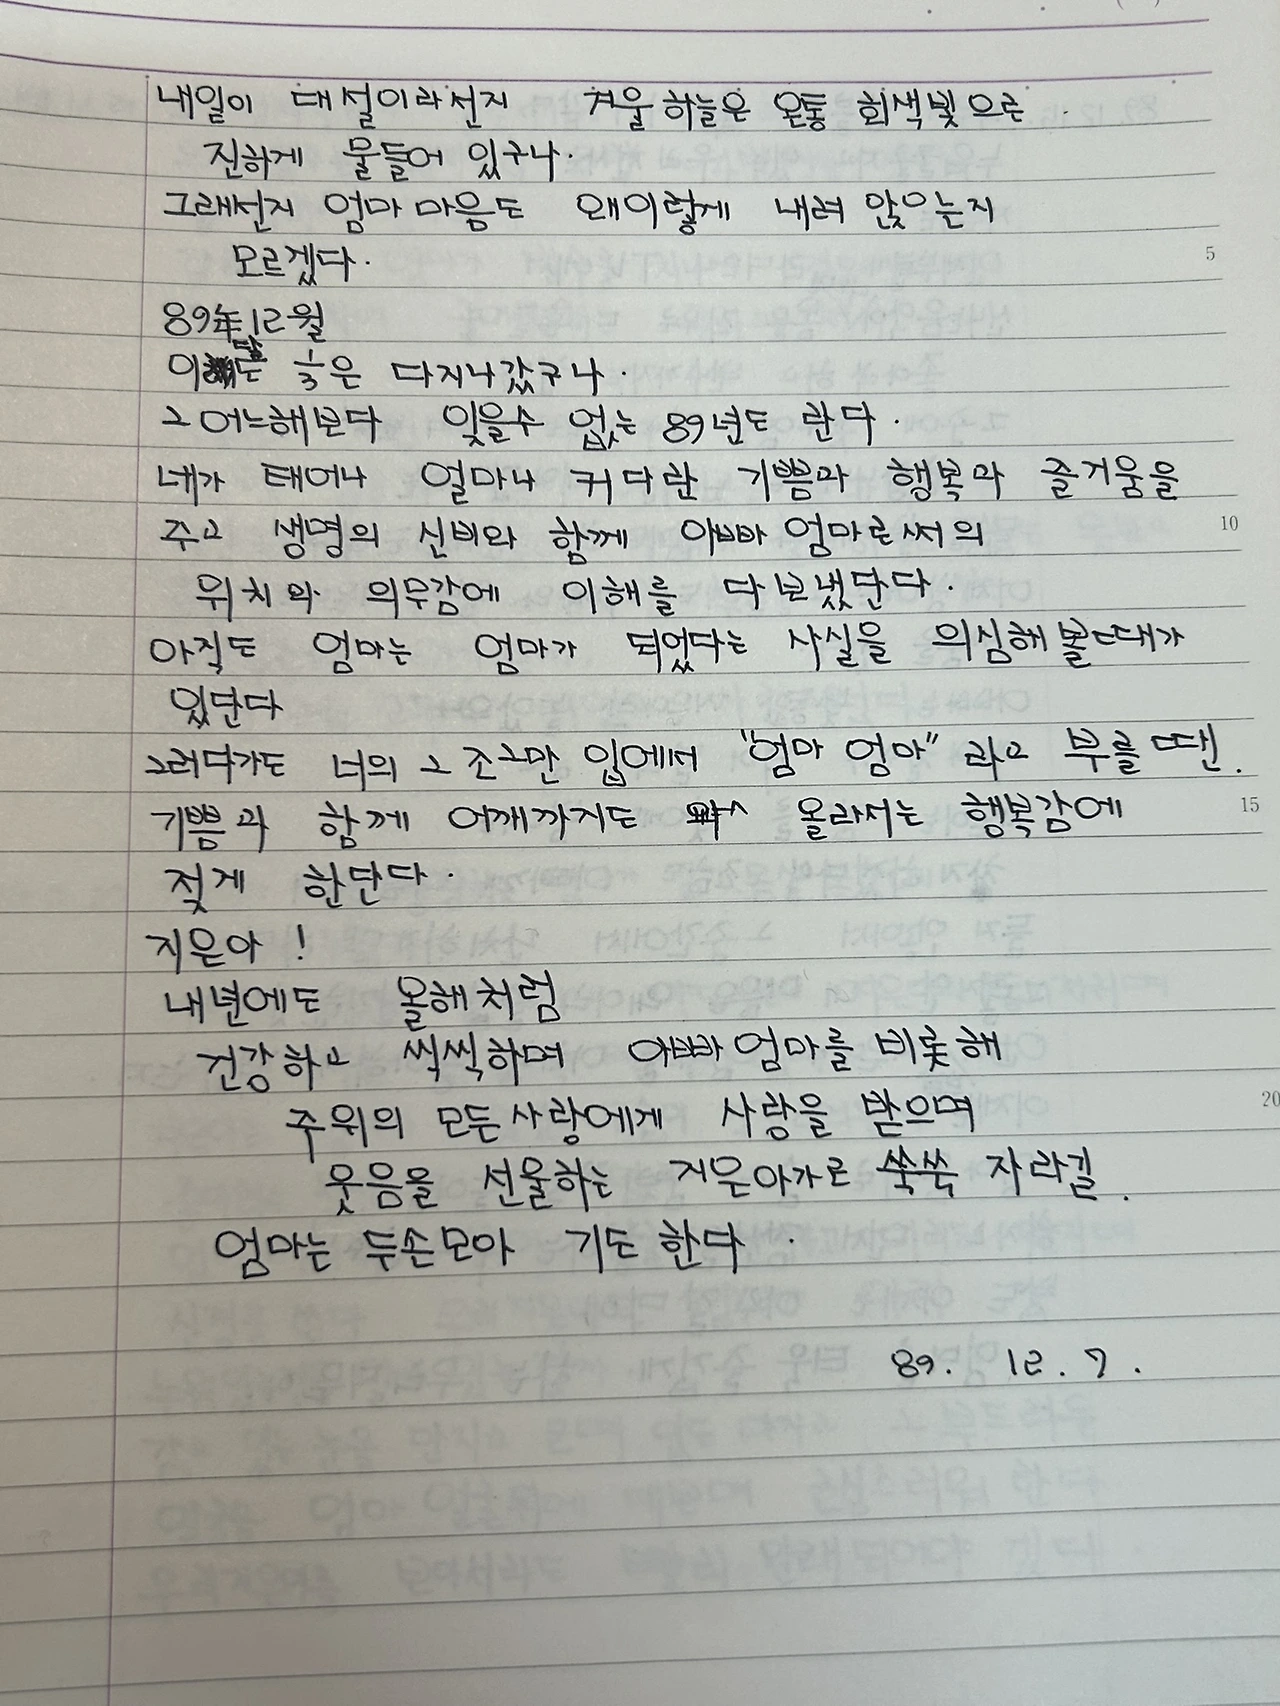 내일이 대설이라선지 겨울 하늘은 온통 회색빛으로
진하게 물들어 있구나.
그래선지 엄마 마음도 왜이렇게 내려 앉으는지
모르겠다.
89年 12월
이달도 ⅓은 다지나갔구나.
그 어느해보다 잊을수 없는 89년도 란다.
네가 태어나 얼마나 커다란 기쁨과 행복과 즐거움을
주고 생명의 신비와 함께 아빠 엄마로써의
위치와 의무감에 이해를 다 보냈단다.
아직도 엄마는 엄마가 되었다는 사실을 의심해 볼때가
있단다
그러다가도 너의 그 조그만 입에서 "엄마 엄마" 라고 부를 땐.
기쁨과 함께 어깨까지도 올라서는 행복감에
젖게 한단다.
지은아 !
내년에도 올해처럼
건강하고 씩씩하며 아빠 엄마를 비롯해
주위의 모든사랑에게 사랑을 받으며
웃음을 선물하는 지은아가로 쑥쑥 자라길.
엄마는 두손모아 기도 한다.
89. 12. 7.
5
10
15
20